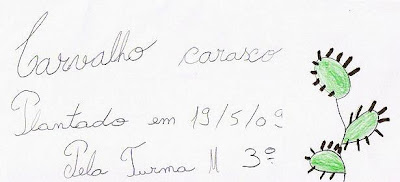 Carvalho carasco
Plantado em 19/5/09
Pela Turma M 3º